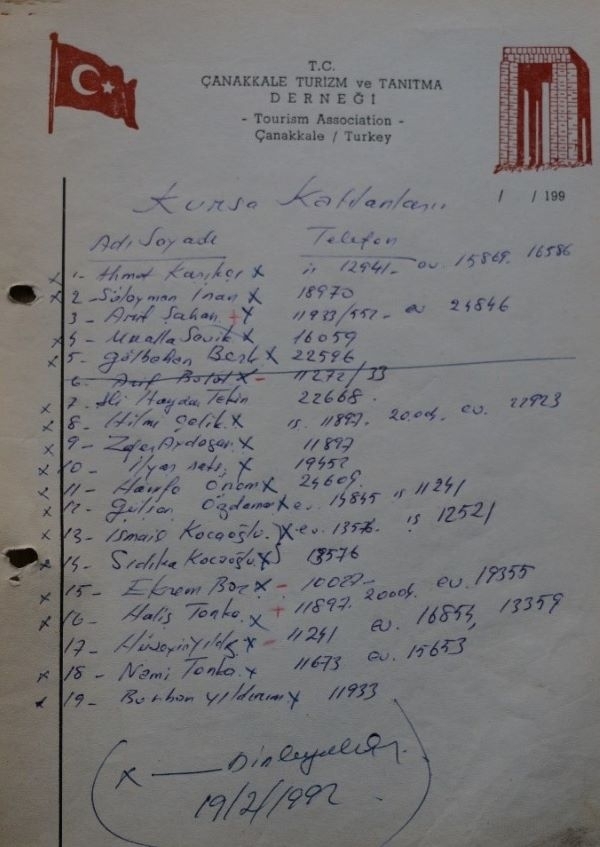 T.C.
ÇANAKKALE TURİZM ve TANITMA
DERNEĞİ
- Tourism Association -
Çanakkale / Turkey
/ / 199
Kursa Katılanlar
Adı Soyadı Telefon
x 1- Ahmet x iş 12941- ev. 15869. 16586
x 2- Süleyman İnan x 18970
3- Arif Şahan +x 11933/552- ev 24846
x 4- Mualla Sevik x 16059
x 5- Gülbahan Berk x 22596
6- Arif Bulut x - 11272/33
x 7- Ali Haydar Tekin 22668
x 8- Hilmi Çelik x iş. 11897. ev. 22923
x 9- Zafer Aydoğan x 11897
x 10- İlyas x 19452
x 11- Hanife Önem x 24609
x 12- Gülsan Özdamar x ev. 14845 iş 11241
x 13- İsmail Kocaoğlu x ev. 13576 iş 12521
x 14- Sıdıka Kocaoğlu x 13576
x 15- Ekrem Boz x - 10027-
x 16- Haliş Tonka + 11897. ev. 19355
17- Hüseyin Yıldız - 11241 ev. 16854, 13359
x 18- Nami Tonka x 11673 ev. 15653
x 19- Burhan Yıldırım x 11933
x — Dinleyiciler
19/2/1992